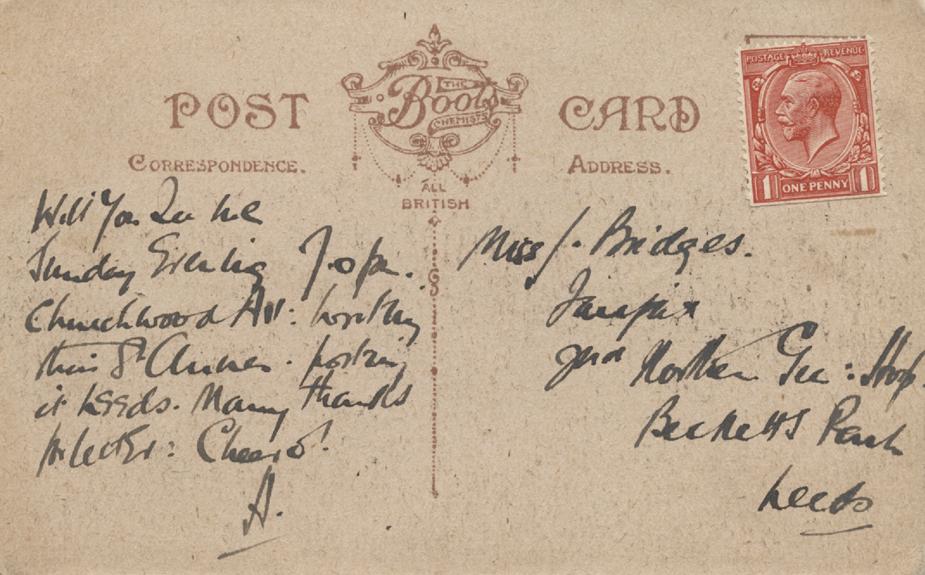 POST CARD
THE
Boots
CHEMISTS
CORRESPONDENCE.
ADDRESS.
ALL
BRITISH
POSTAGE REVENUE
1 ONE PENNY 1
Will you see me
Sunday Evening 7.0 pm.
Churchwood Av: writing
this St Annes. posting
it Leeds. Many thanks
for letter: Cheerō!
A.
Miss J. Bridges.
2nd Northern Gen: Hosp.
Becketts Park
Leeds